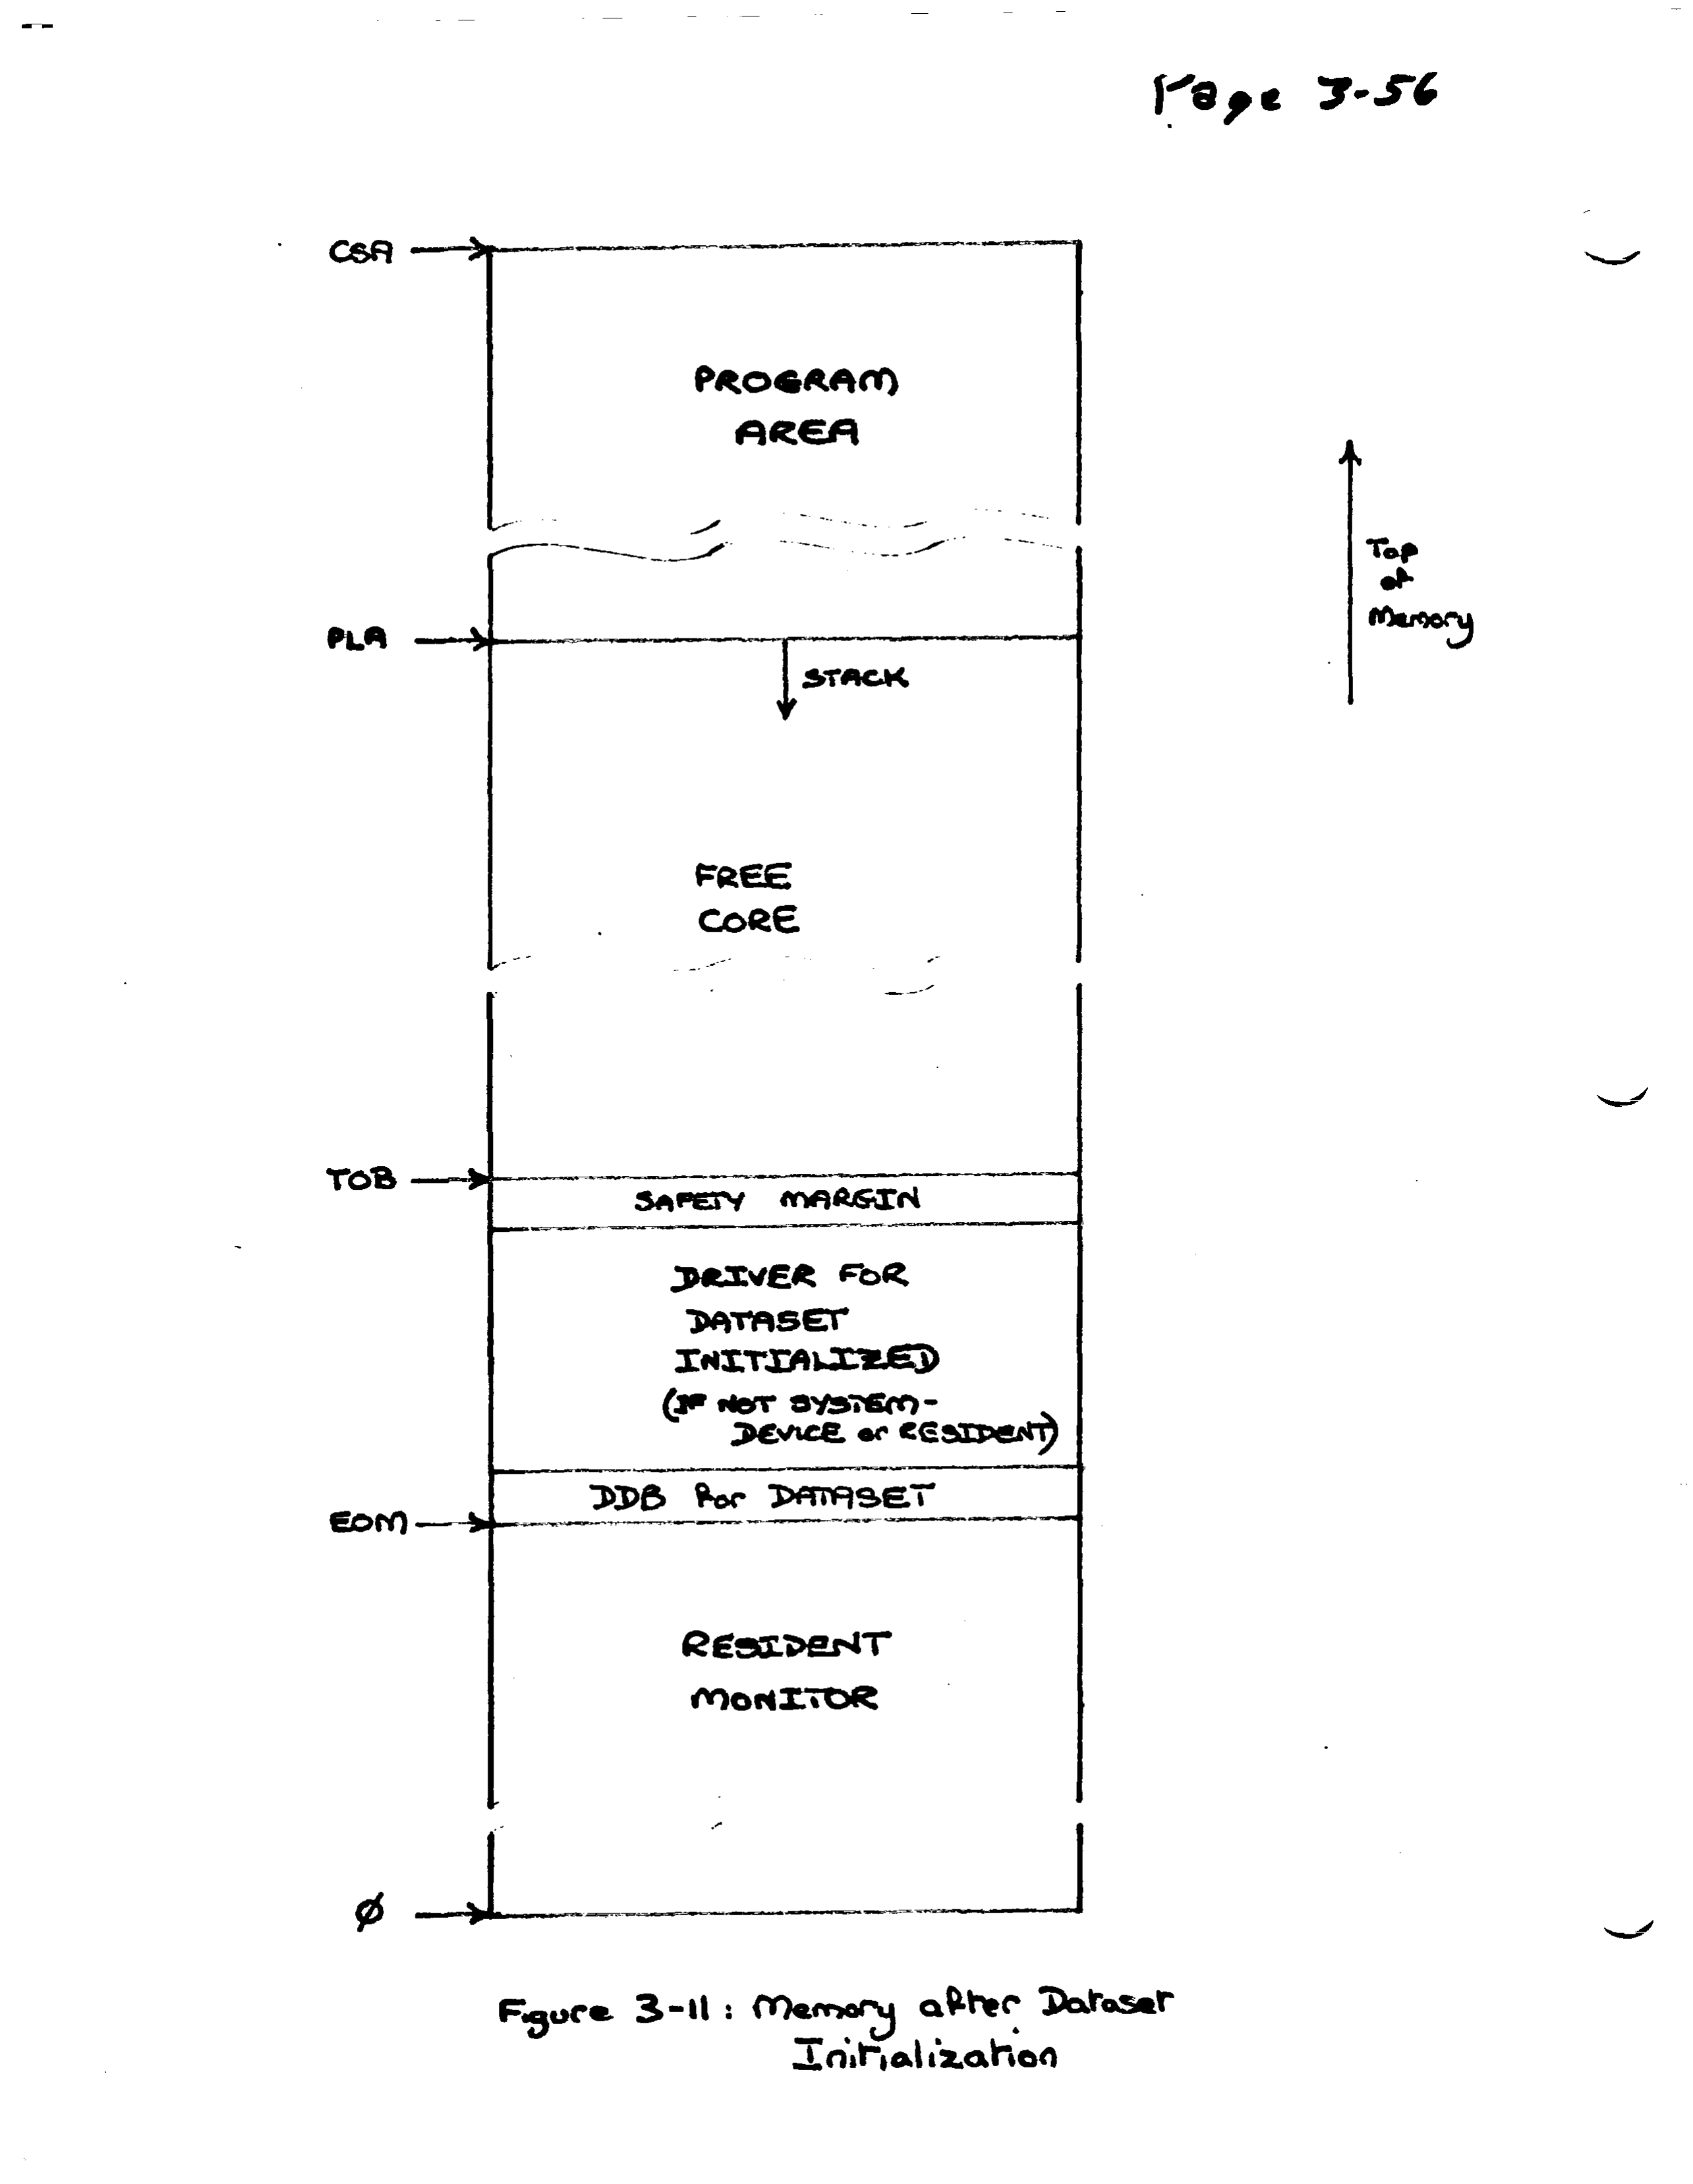 Page 3-56
CSA
PROGRAM
AREA
Top
of
Memory
PLA
STACK
FREE
CORE
TOB
SAFETY MARGIN
DRIVER FOR
DATASET
INITIALIZED
(IF NOT SYSTEM-
DEVICE or RESIDENT)
DDB for DATASET
EOM
RESIDENT
MONITOR
Ø
Figure 3-11: Memory after Dataset
Initialization